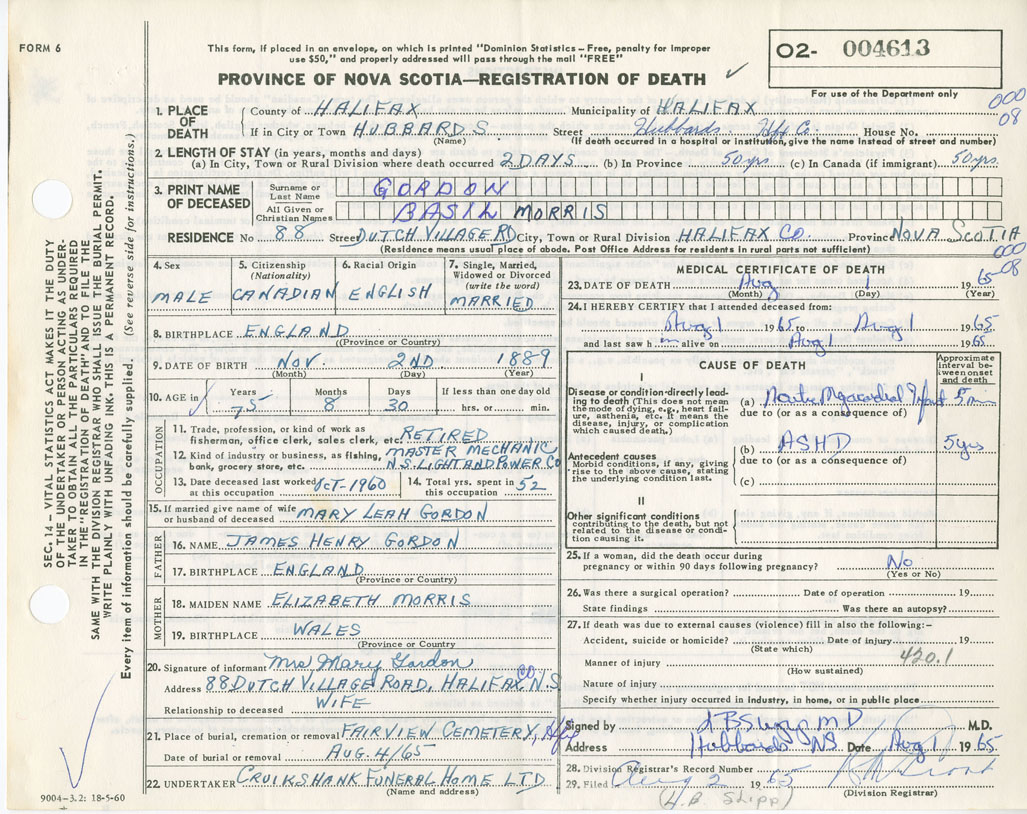 FORM 6
This form, if placed in an envelope, on which is printed "Dominion Statistics – Free, penalty for improper
use $50," and properly addressed will pass through the mail "FREE"
PROVINCE OF NOVA SCOTIA—REGISTRATION OF DEATH ✓
O2- 004613
For use of the Department only
000
08
1. PLACE OF DEATH { County of HALIFAX Municipality of HALIFAX
If in City or Town HUBBARDS Street Hubbards Hfx Co. House No.
(Name) (If death occurred in a hospital or institution, give the name instead of street and number)
2. LENGTH OF STAY (in years, months and days)
(a) In City, Town or Rural Division where death occurred 2 DAYS (b) In Province 50 yrs. (c) In Canada (if immigrant) 50 yrs.
3. PRINT NAME OF DECEASED { Surname or Last Name GORDON
All Given or Christian Names BASIL MORRIS
RESIDENCE No 88 Street DUTCH VILLAGE RD City, Town or Rural Division HALIFAX CO. Province NOVA SCOTIA
(Residence means usual place of abode. Post Office Address for residents in rural parts not sufficient)
000
08
4. Sex MALE
5. Citizenship (Nationality) CANADIAN
6. Racial Origin ENGLISH
7. Single, Married, Widowed or Divorced (write the word) MARRIED
8. BIRTHPLACE ENGLAND
(Province or Country)
9. DATE OF BIRTH NOV. 2ND 1889
(Month) (Day) (Year)
10. AGE in Years 75 Months 8 Days 30 If less than one day old hrs. or min.
OCCUPATION
11. Trade, profession, or kind of work as
fisherman, office clerk, sales clerk, etc. RETIRED
12. Kind of industry or business, as fishing, MASTER MECHANIC
bank, grocery store, etc. N.S. LIGHT AND POWER CO
13. Date deceased last worked at this occupation OCT-1960 14. Total yrs. spent in this occupation 52
15. If married give name of wife
or husband of deceased MARY LEAH GORDON
FATHER
16. NAME JAMES HENRY GORDON
17. BIRTHPLACE ENGLAND
(Province or Country)
MOTHER
18. MAIDEN NAME ELIZABETH MORRIS
19. BIRTHPLACE WALES
(Province or Country)
20. Signature of informant Mrs Mary Gordon
Address 88 DUTCH VILLAGE ROAD, HALIFAX CO. N.S.
Relationship to deceased WIFE
21. Place of burial, cremation or removal FAIRVIEW CEMETERY, Hfx
Date of burial or removal AUG. 4/65
22. UNDERTAKER CRUIKSHANK FUNERAL HOME LTD
(Name and address)
MEDICAL CERTIFICATE OF DEATH
23. DATE OF DEATH Aug 1 1965
(Month) (Day) (Year)
24. I HEREBY CERTIFY that I attended deceased from:
Aug 1 1965 to Aug 1 1965
and last saw him alive on Aug 1 1965
CAUSE OF DEATH
Approximate interval between onset and death
I
Disease or condition directly leading to death (This does not mean the mode of dying, e.g., heart failure, asthenia, etc. It means the disease, injury, or complication which caused death.)
(a) Myocardial Infarct 5 min
due to (or as a consequence of)
Antecedent causes
Morbid conditions, if any, giving rise to the above cause, stating the underlying condition last.
(b) ASHD 5 yrs
due to (or as a consequence of)
(c)
II
Other significant conditions
contributing to the death, but not related to the disease or condition causing it.
25. If a woman, did the death occur during
pregnancy or within 90 days following pregnancy? No
(Yes or No)
26. Was there a surgical operation? Date of operation 19
State findings Was there an autopsy?
27. If death was due to external causes (violence) fill in also the following:–
Accident, suicide or homicide? Date of injury 19
(State which)
420.1
Manner of injury
(How sustained)
Nature of injury
Specify whether injury occurred in industry, in home, or in public place
Signed by M D M.D.
Address Hubbards NS. Date Aug 1 1965
28. Division Registrar's Record Number
29. Filed Aug 2 1965
(Division Registrar)
(H.B. Slipp)
SEC. 14 – VITAL STATISTICS ACT MAKES IT THE DUTY
OF THE UNDERTAKER OR PERSON ACTING AS UNDER-
TAKER TO OBTAIN ALL THE PARTICULARS REQUIRED
IN THE "REGISTRATION OF DEATH" AND TO FILE THE
SAME WITH THE DIVISION REGISTRAR WHO SHALL ISSUE THE BURIAL PERMIT.
WRITE PLAINLY WITH UNFADING INK. THIS IS A PERMANENT RECORD.
Every item of information should be carefully supplied. (See reverse side for instructions.)
9004-3.2: 18-5-60